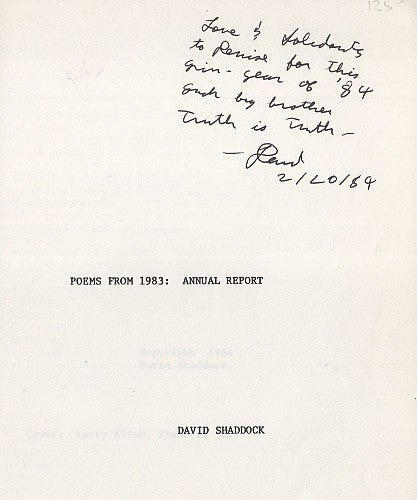 125
Love & Solidarity
to Denise for this
grin-year of '84
Such big brother
Truth is Truth —
— David
2/20/84
POEMS FROM 1983: ANNUAL REPORT
Copyright 1984
David Shaddock
DAVID SHADDOCK
Cover: Larry Kline,